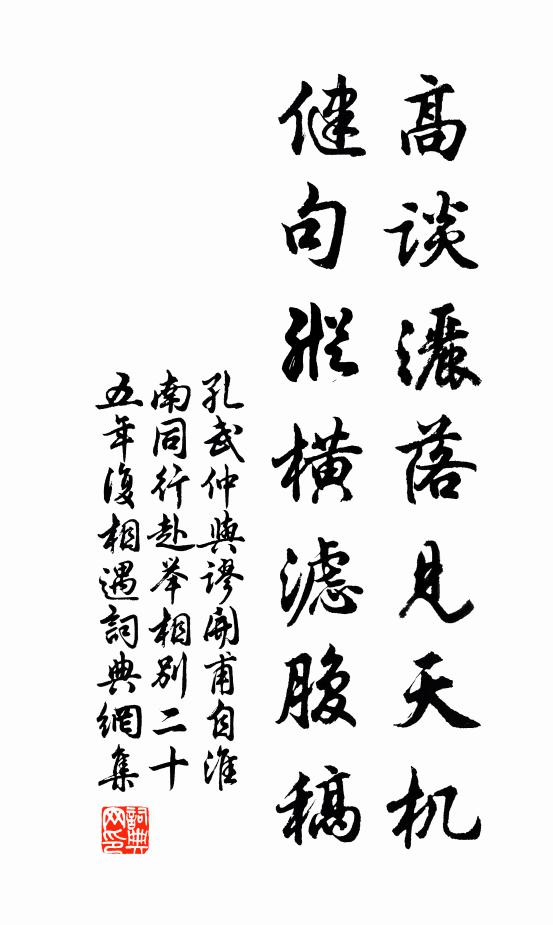 高谈灑落見天机
健句縱横濾腹稿
孔武仲與謬開甫自淮
南同行赴举相别二十
五年復相遇詞典網集
詞典网印